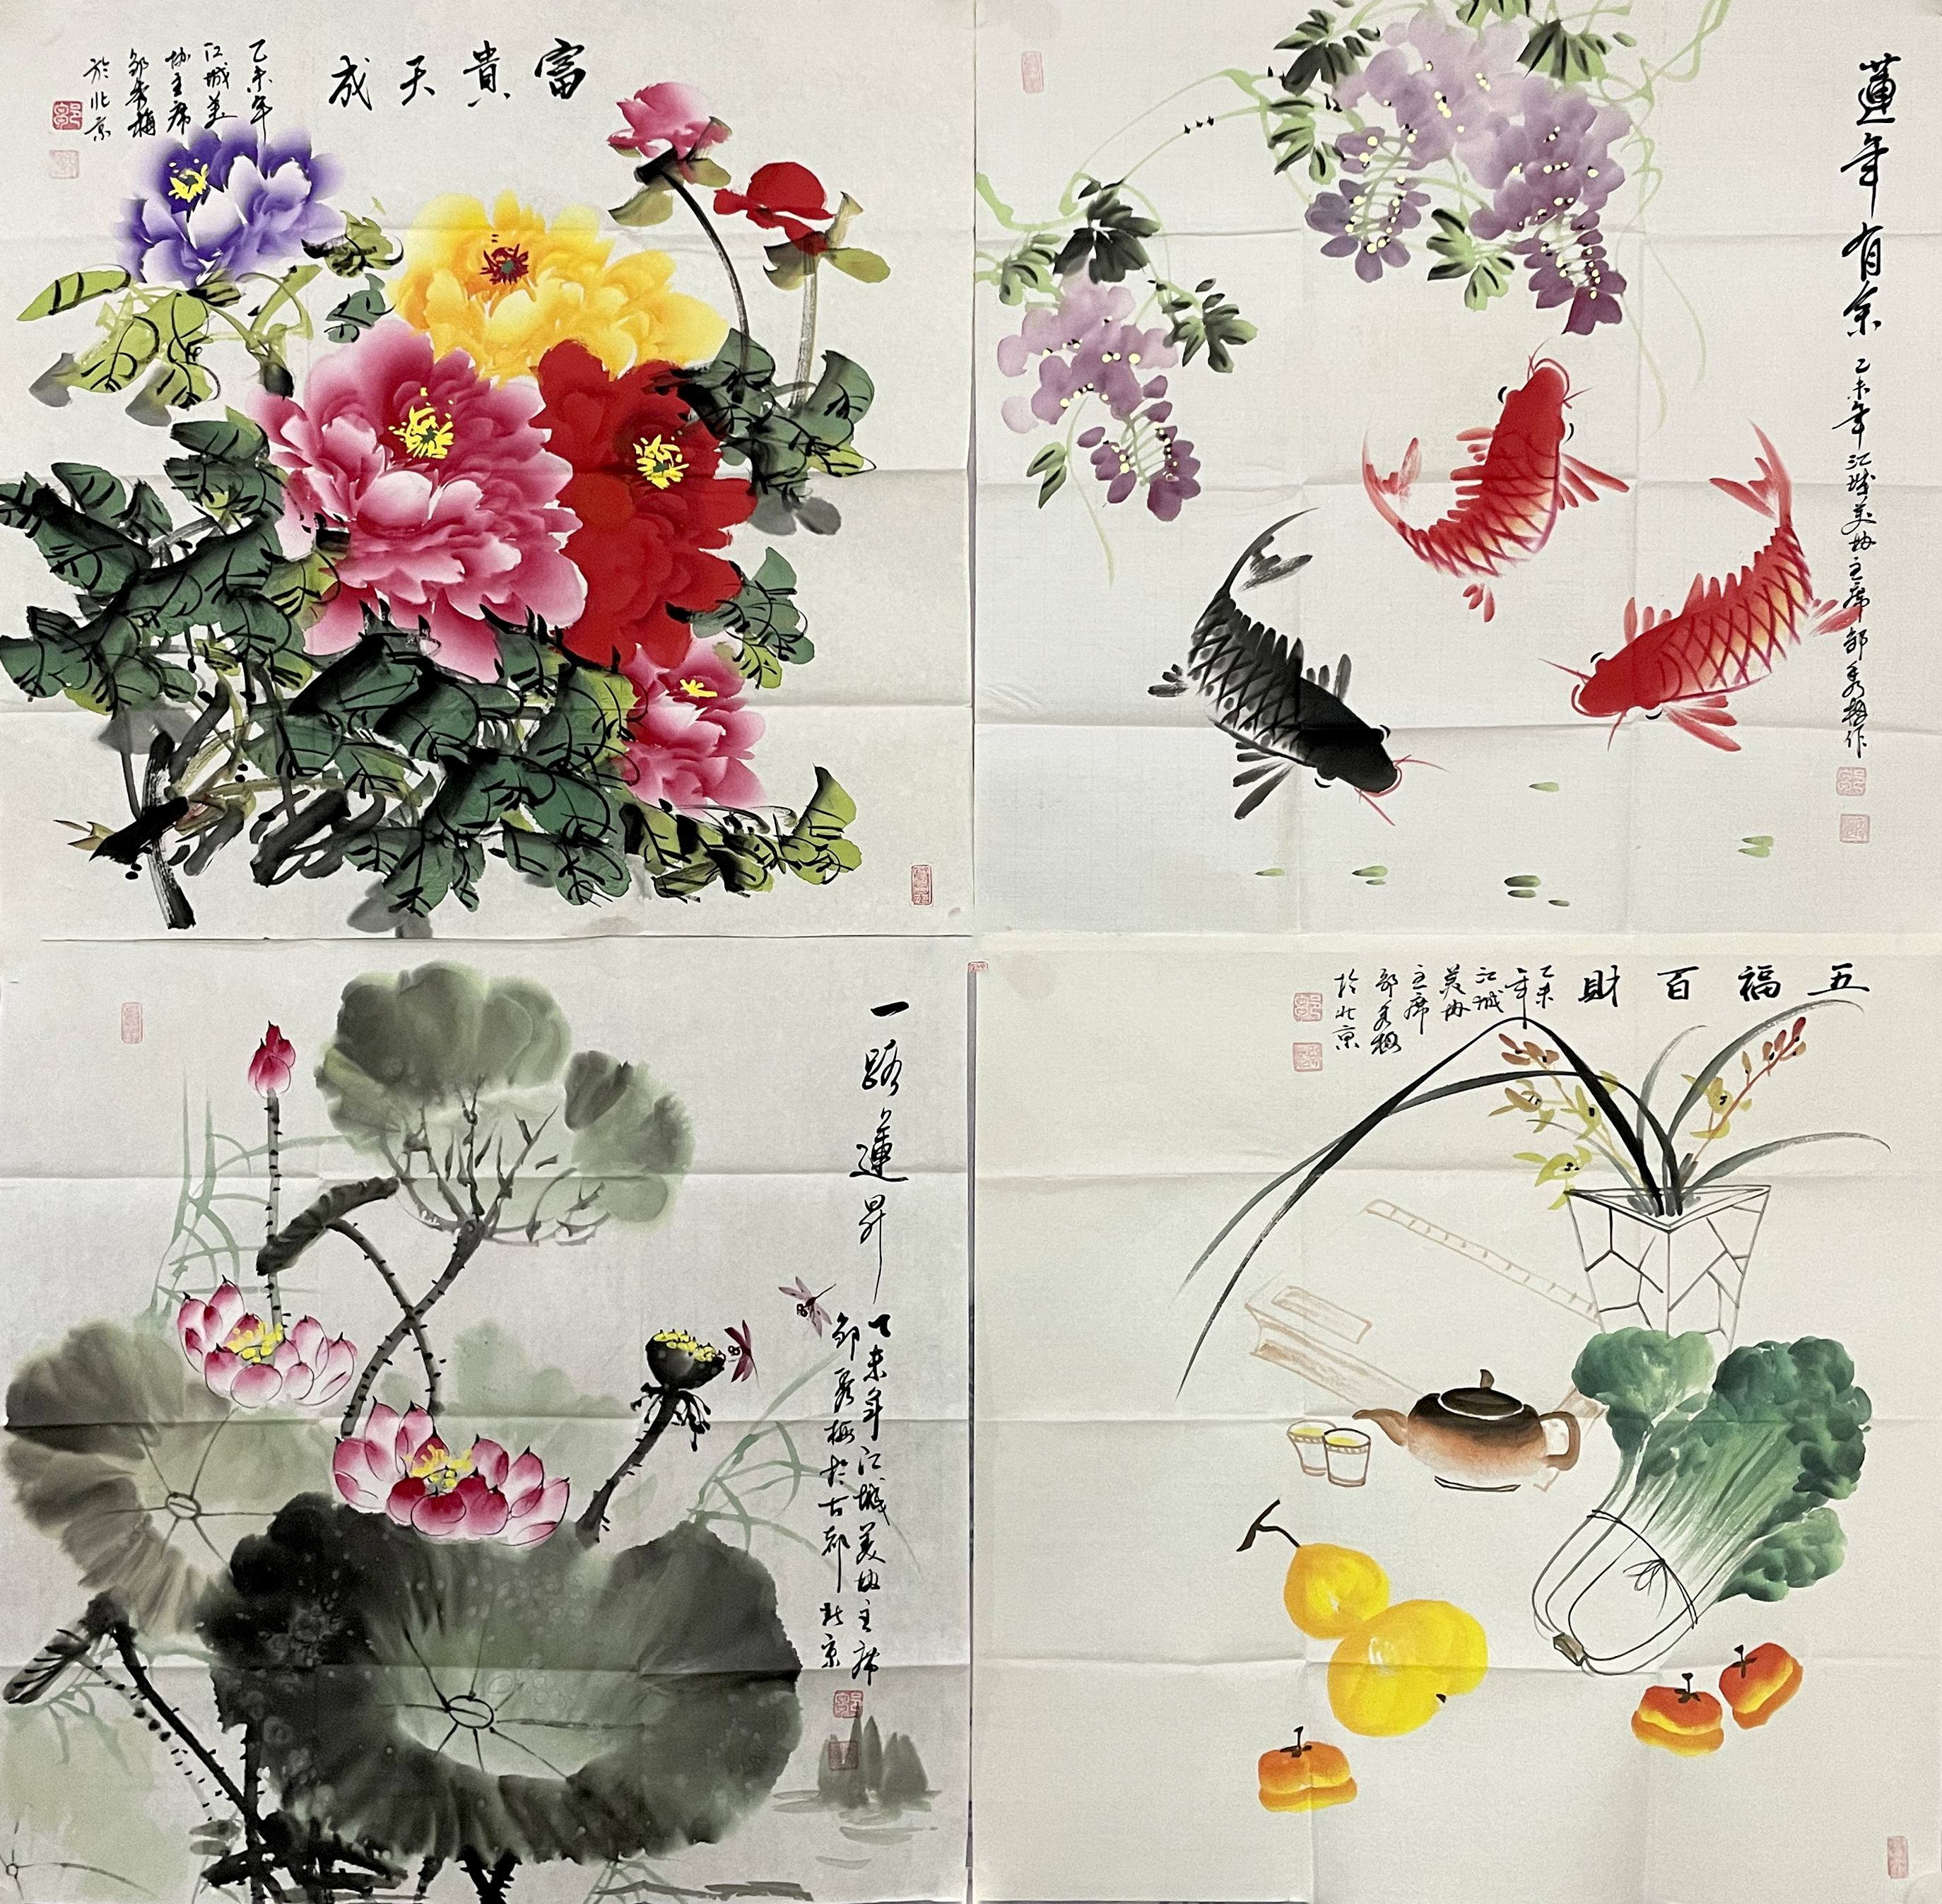 富貴天成
乙未年
江城美
协主席
邹秀梅
於北京
蓮年有余
乙未年江城美协主席邹秀梅作
一路蓮昇
乙未年江城美协主席
邹秀梅於古都北京
五福百財
乙未
年
江城
美协
主席
邹秀梅
於北京